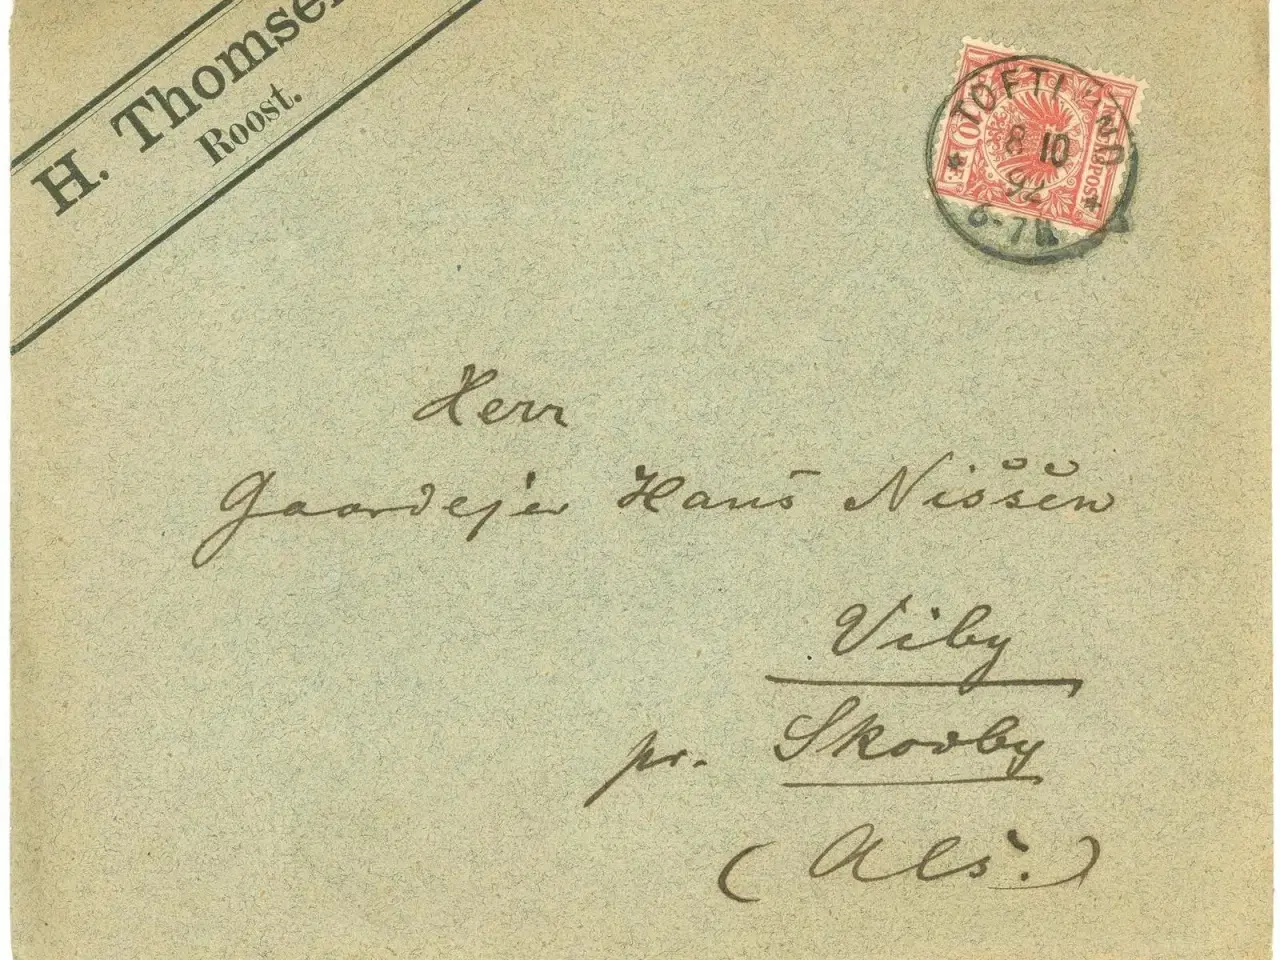 H. Thomsen
Roost.
TOFTLUND
8 10
92
6-7N
10
REICHSPOST
Herr
Gaardejer Hans Nissen
Viby
pr. Skovby
(Als.)